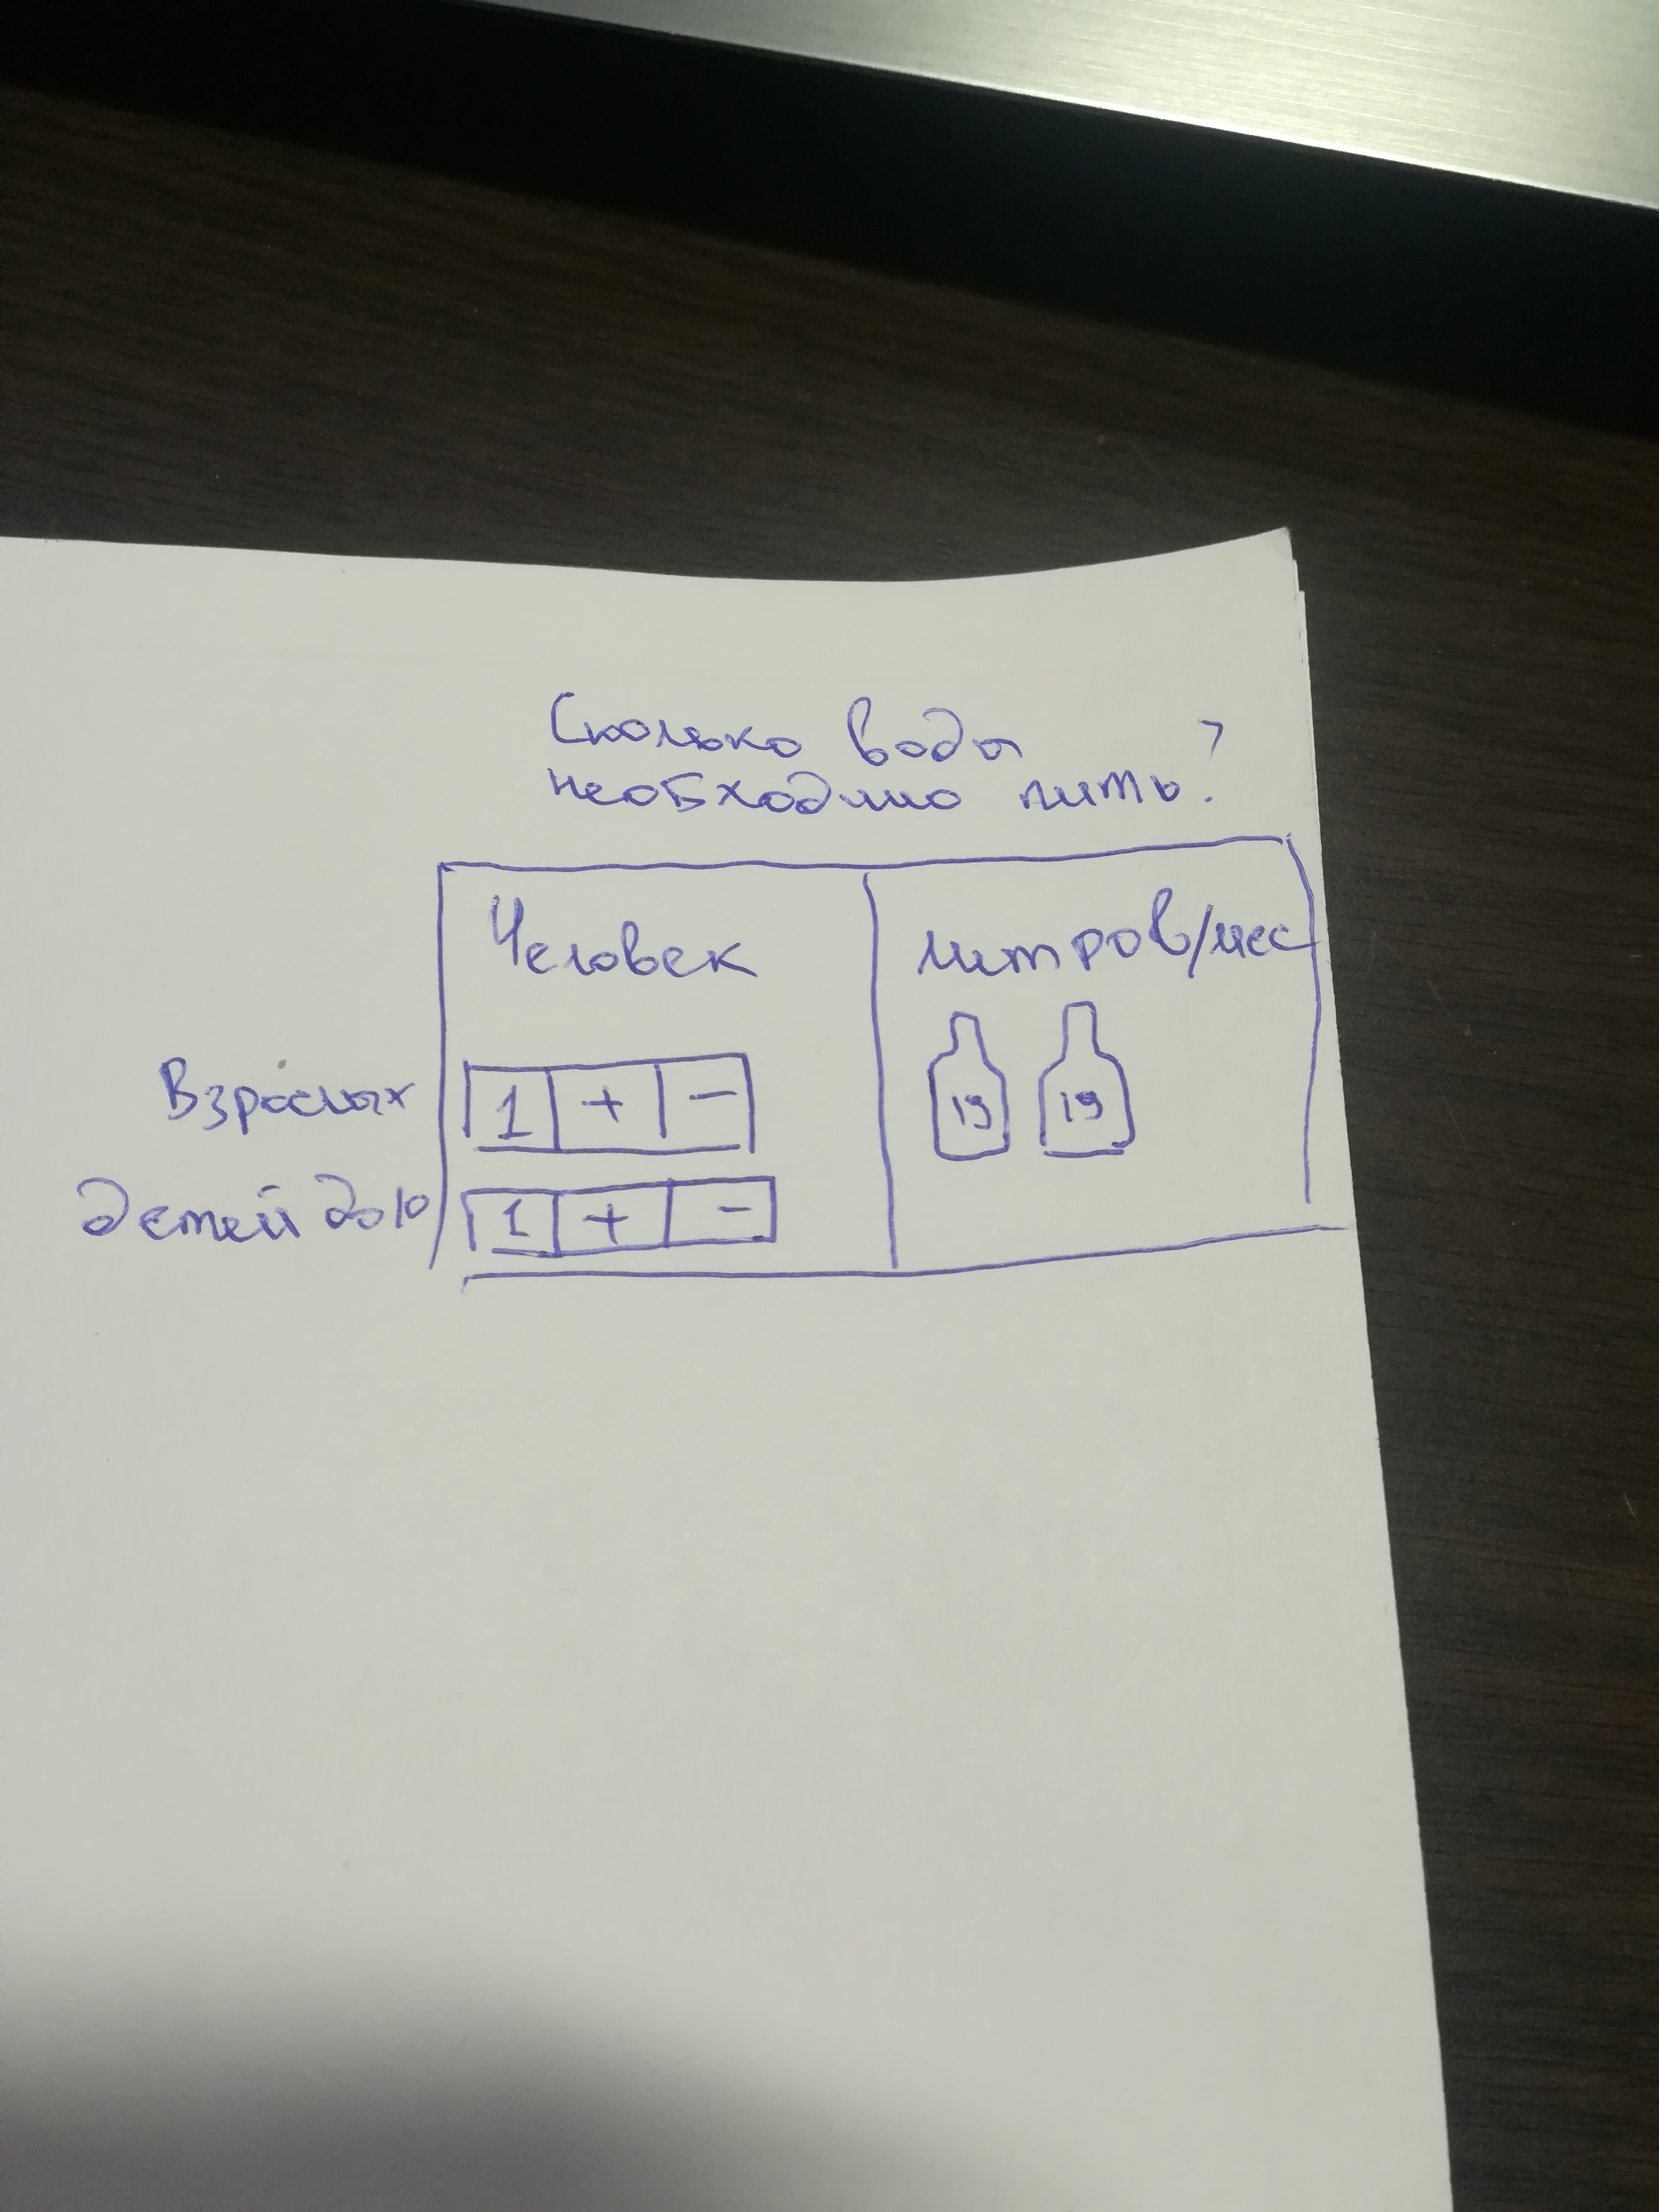 Сколько воды
необходимо пить?
Человек литров/мес
Взрослых 1 + - 19 19
детей до 10 1 + -